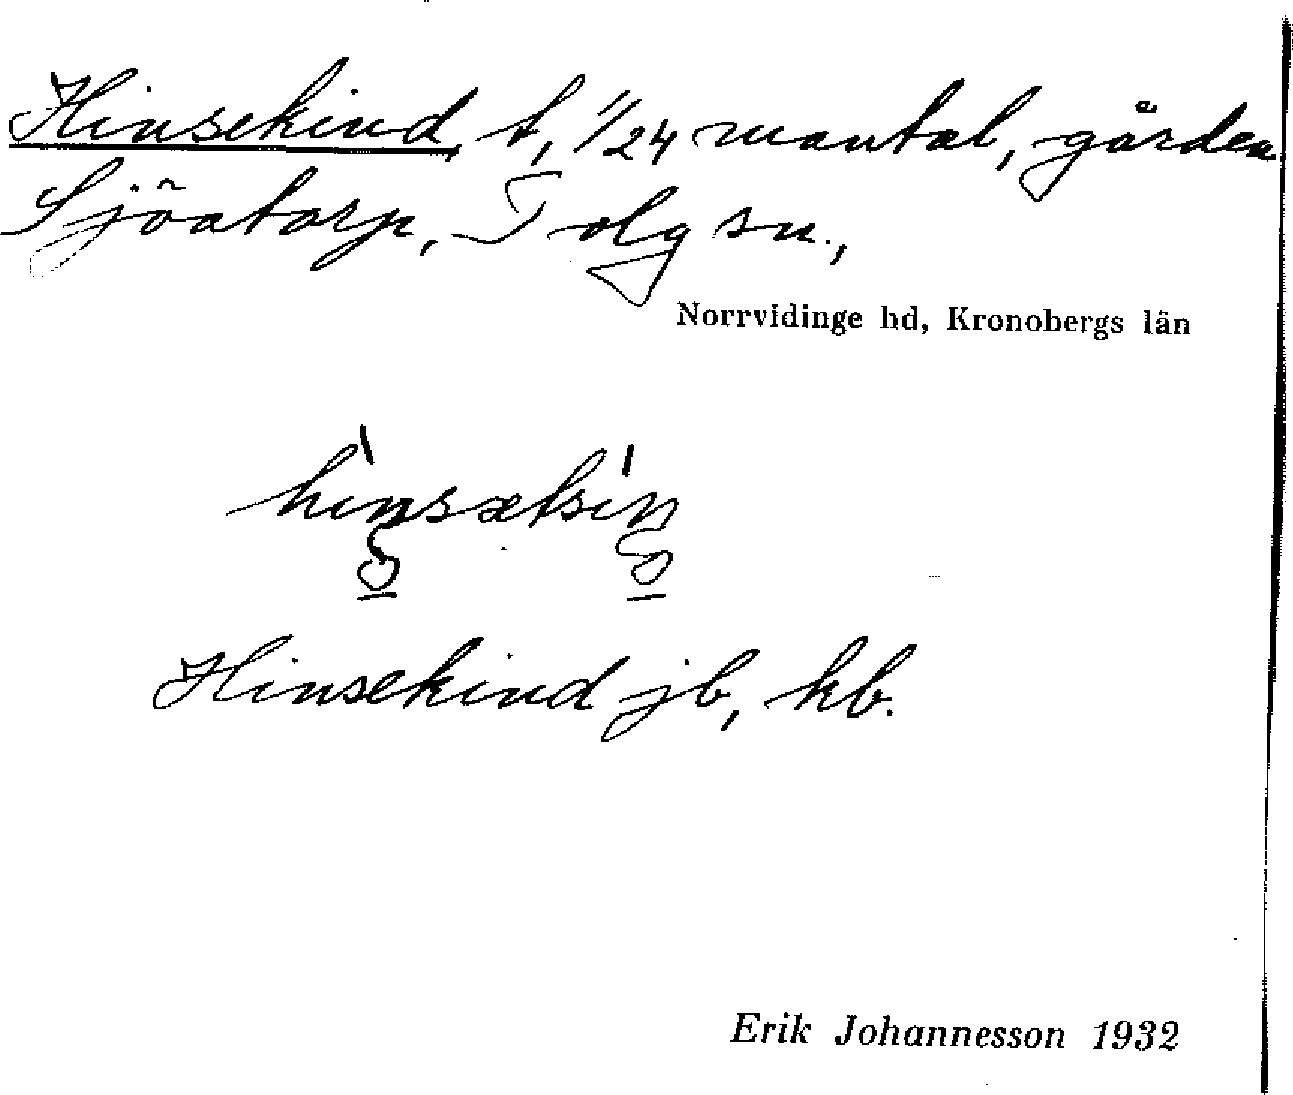 Hinsekind, t, 1/24 mantal, gården
Sjöatorp, Tolg sn.,
Norrvidinge hd, Kronobergs län
Hinsekind jb, kb.
Erik Johannesson 1932